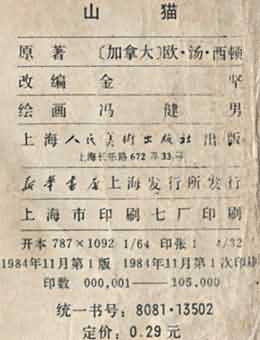 山 猫
原 著 〔加拿大〕欧·汤·西顿
改 编 金 坚
绘 画 冯 健 男
上海人民美术出版社出版
上海长乐路672弄33号
新华书店上海发行所发行
上海市印刷七厂印刷
开本 787×1092 1/64 印张 1 /32
1984年11月第1版 1984年11月第1次印刷
印数 000,001——105,000
统一书号：8081·13502
定价：0.29 元